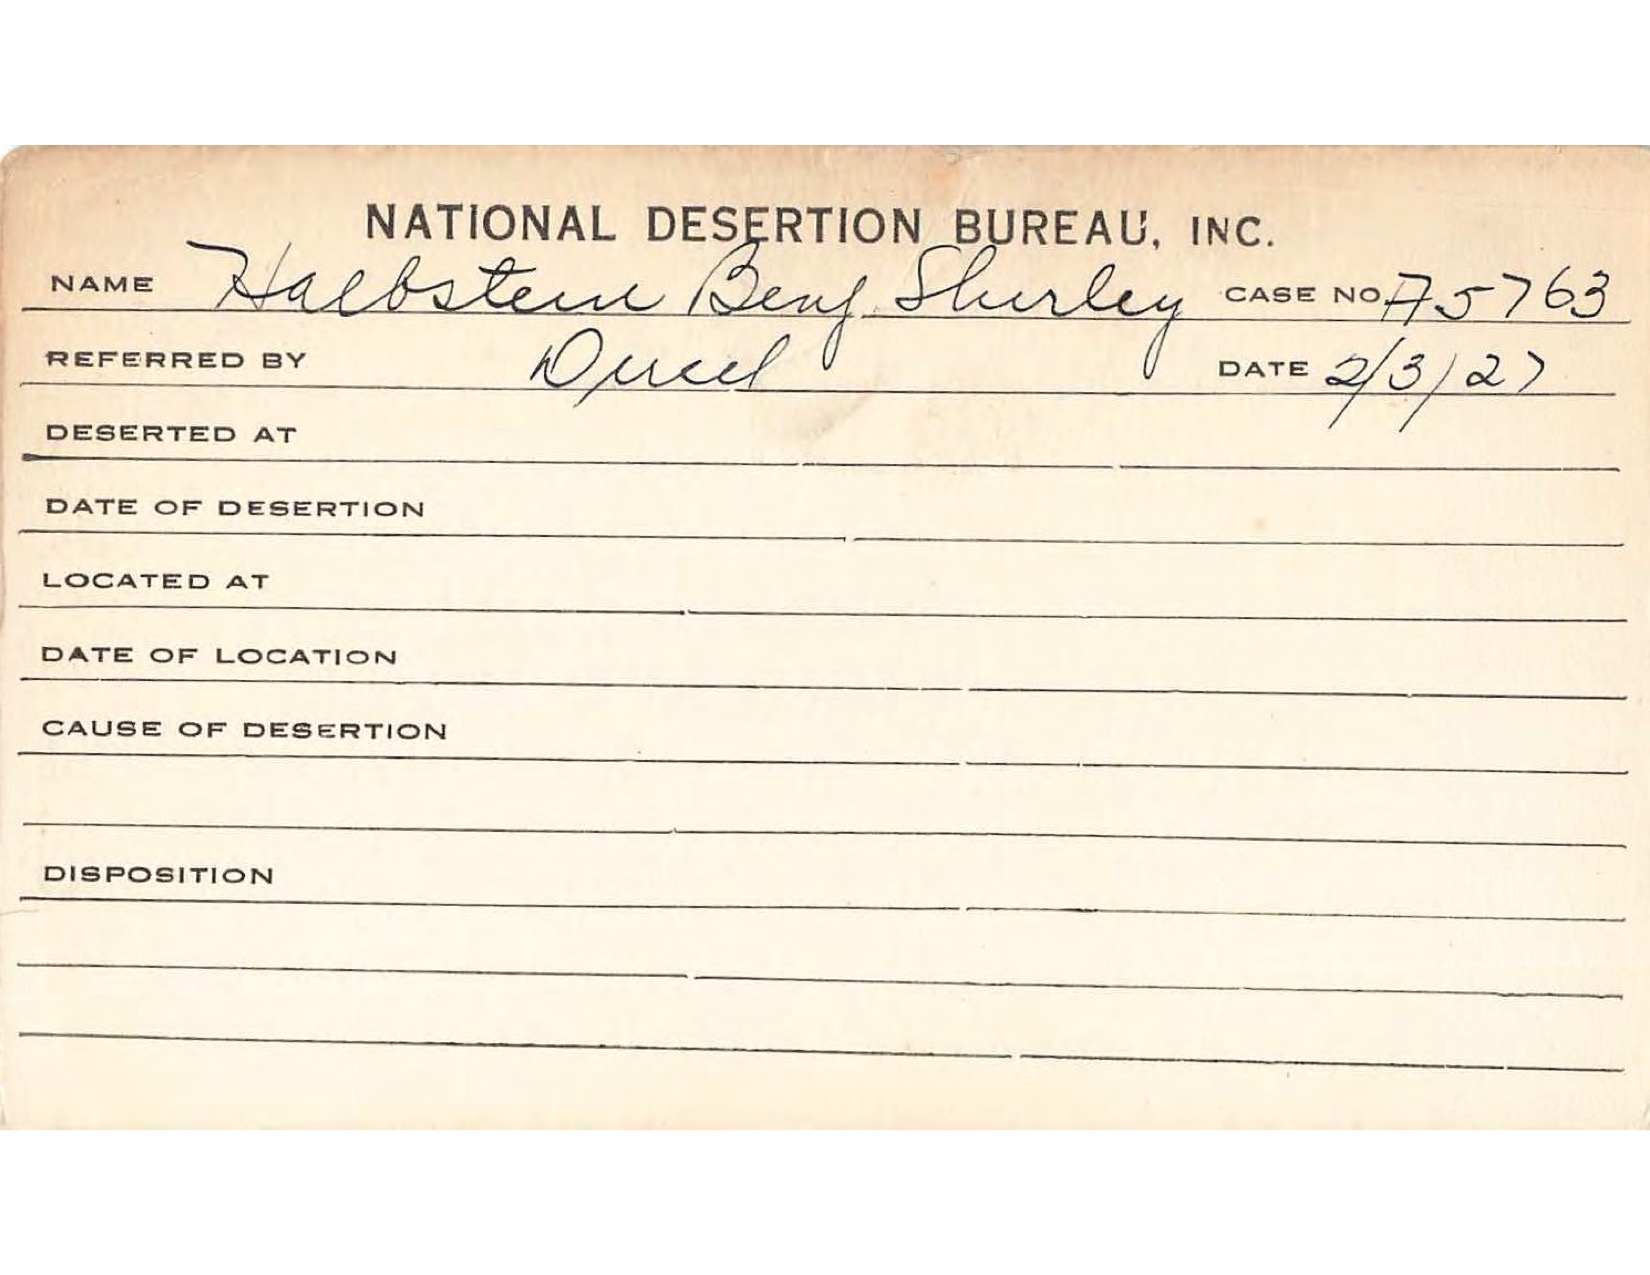 NATIONAL DESERTION BUREAU, INC.
NAME Halbstein Benj. Shirley CASE NO. A5763
REFERRED BY Direct DATE 2/3/27
DESERTED AT
DATE OF DESERTION
LOCATED AT
DATE OF LOCATION
CAUSE OF DESERTION
DISPOSITION